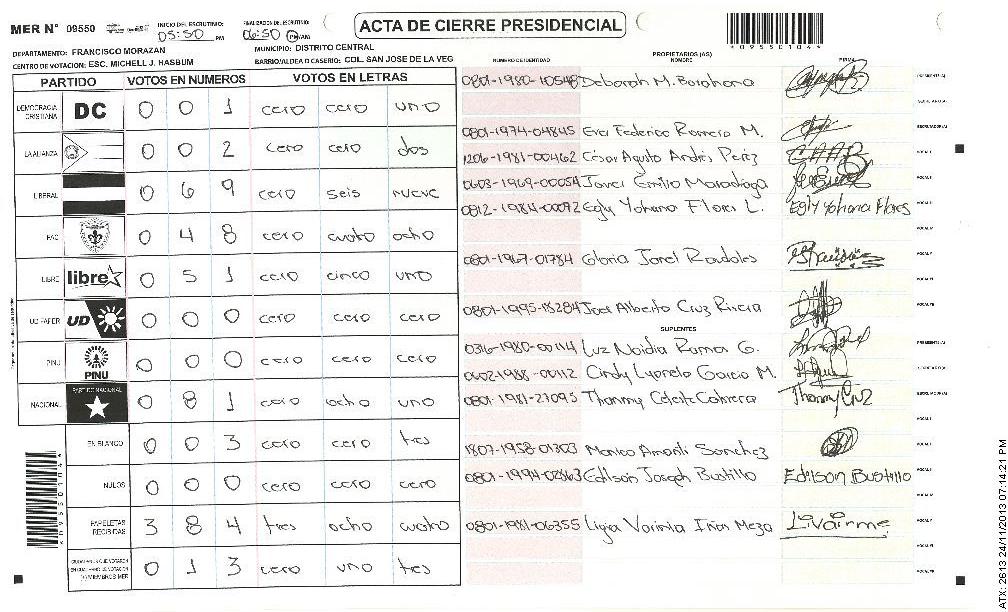 MER N° 09550
INICIO DEL ESCRUTINIO: 05:50 PM
FINALIZACION DEL ESCRUTINIO: 06:50 PM/AM
ACTA DE CIERRE PRESIDENCIAL
*09550104*
DEPARTAMENTO: FRANCISCO MORAZAN
MUNICIPIO: DISTRITO CENTRAL
CENTRO DE VOTACION: ESC. MICHELL J. HASBUM
BARRIO/ALDEA O CASERIO: COL. SAN JOSE DE LA VEG
NUMERO DE IDENTIDAD
PROPIETARIOS (AS)
NOMBRE
FIRMA
PARTIDO VOTOS EN NUMEROS VOTOS EN LETRAS
DEMOCRACIA CRISTIANA DC 0 0 1 cero cero uno
LA ALIANZA 0 0 2 cero cero dos
LIBERAL 0 6 9 cero seis nueve
PAC 0 4 8 cero cuatro ocho
LIBRE libre 0 5 1 cero cinco uno
UD FAPER UD 0 0 0 cero cero cero
PINU PINU 0 0 0 cero cero cero
NACIONAL PARTIDO NACIONAL 0 8 1 cero ocho uno
EN BLANCO 0 0 3 cero cero tres
NULOS 0 0 0 cero cero cero
PAPELETAS RECIBIDAS 3 8 4 tres ocho cuatro
CIUDADANOS QUE VOTARON EN CUADERNO DE VOTACION Y MIEMBROS MER 0 1 3 cero uno tres
0801-1980-10548 Deborah M. PRESIDENTE(A)
SECRETARIO(A)
0801-1974-04845 Eva Federico Romero M. ESCRUTADOR(A)
1206-1981-00462 César Agusto Andrés Peréz VOCAL I
0603-1969-00054 Javier Emilio Maradiaga VOCAL II
0812-1984-00072 Egly Yohana Flores L. Egly Yohana Flores VOCAL III
VOCAL IV
0801-1967-01784 Gloria Janet VOCAL V
VOCAL VI
0801-1995-18284 Joel Alberto Cruz VOCAL VII
SUPLENTES
0316-1980-00114 Luz Naidia Ramos G. PRESIDENTE(A)
0602-1988-00112 Cindy Garcia M. SECRETARIO(A)
0801-1981-27095 Thammy Celeste Cabrera Thammy Cruz ESCRUTADOR(A)
VOCAL I
1807-1958-01303 Sanchez VOCAL II
0801-1994-02863 Edilson Joseph Bustillo Edilson Bustillo VOCAL III
VOCAL IV
0801-1981-06355 Ligia Irias Meza Livairme VOCAL V
VOCAL VI
VOCAL VII
*09550104*
ATX: 2613 24/11/2013 07:14:21 PM